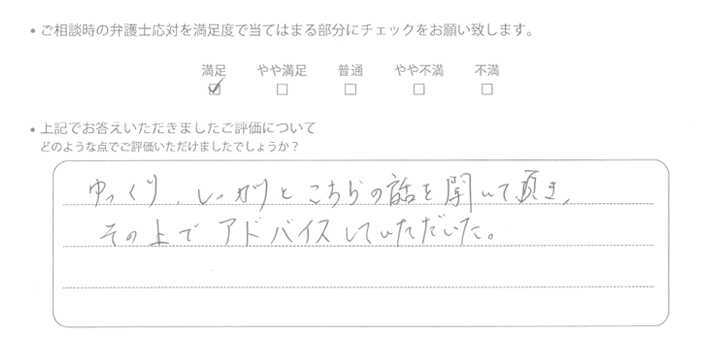 • ご相談時の弁護士応対を満足度で当てはまる部分にチェックをお願い致します。
満足 やや満足 普通 やや不満 不満
• 上記でお答えいただきましたご評価について
どのような点でご評価いただけましたでしょうか？
ゆっくり、しっかりとこちらの話を聞いて頂き、
その上でアドバイスしていただいた。